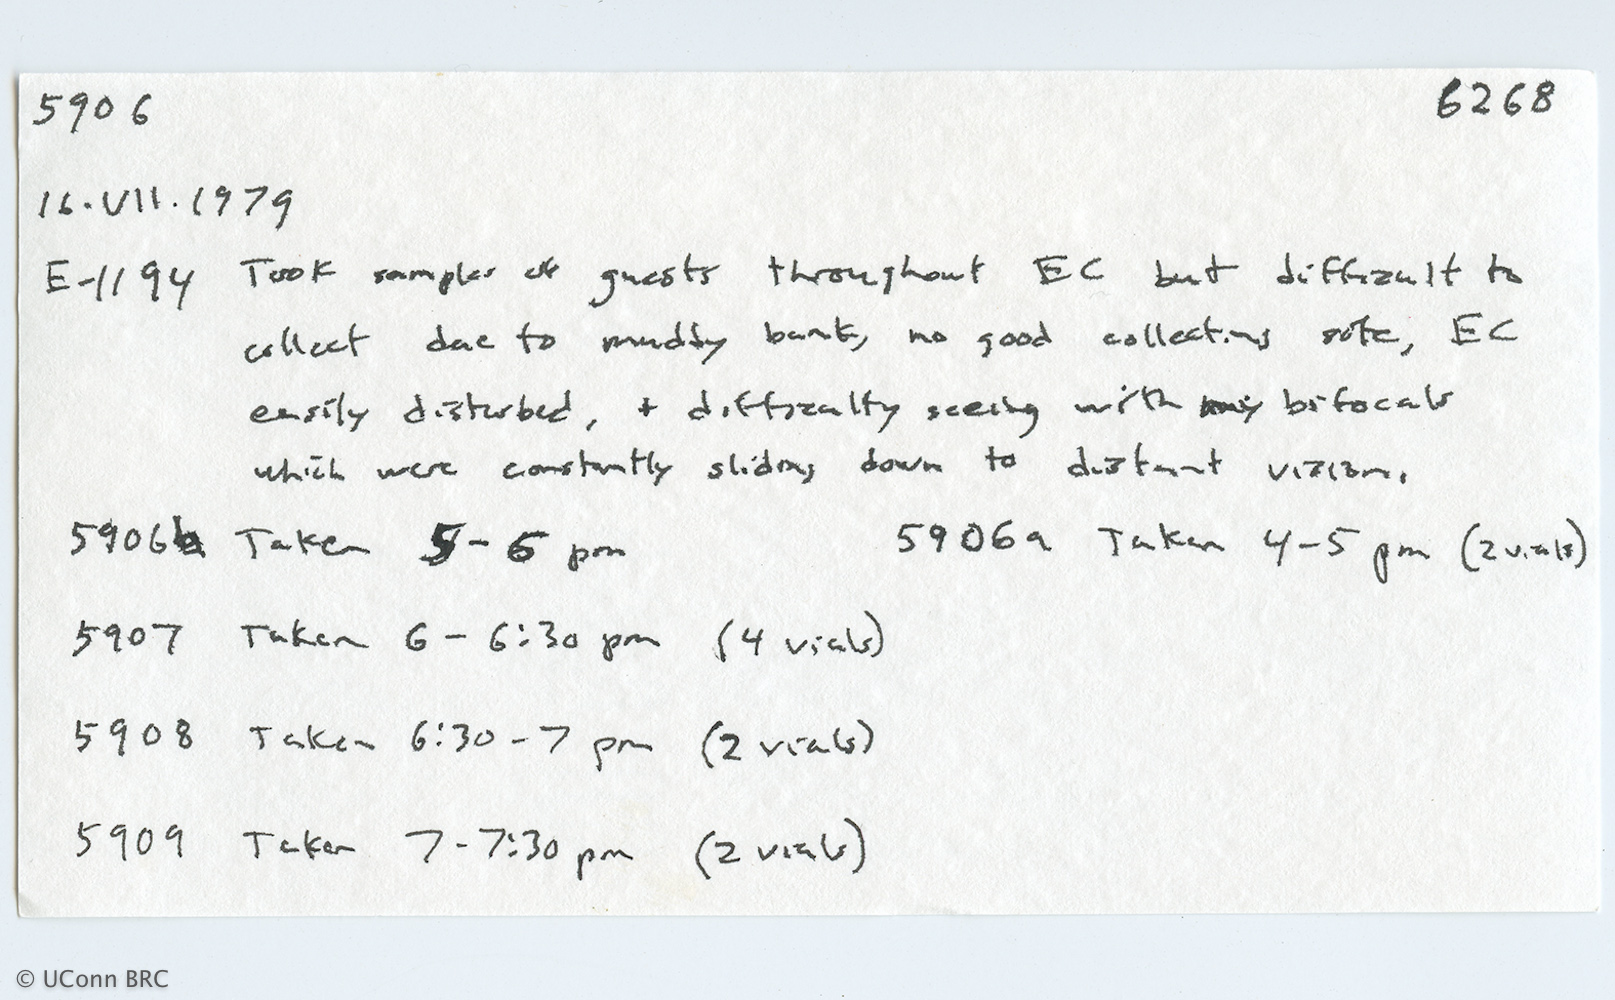 5906 6268
16.VII.1979
E-1194 Took samples of guests throughout EC but difficult to
collect due to muddy bank, no good collecting site, EC
easily disturbed, + difficulty seeing with my bifocals
which were constantly sliding down to distant vision.
5906b Taken 5-6 pm 5906a Taken 4-5 pm (2 vials)
5907 Taken 6 - 6:30 pm (4 vials)
5908 Taken 6:30 - 7 pm (2 vials)
5909 Taken 7-7:30 pm (2 vials)
© UConn BRC